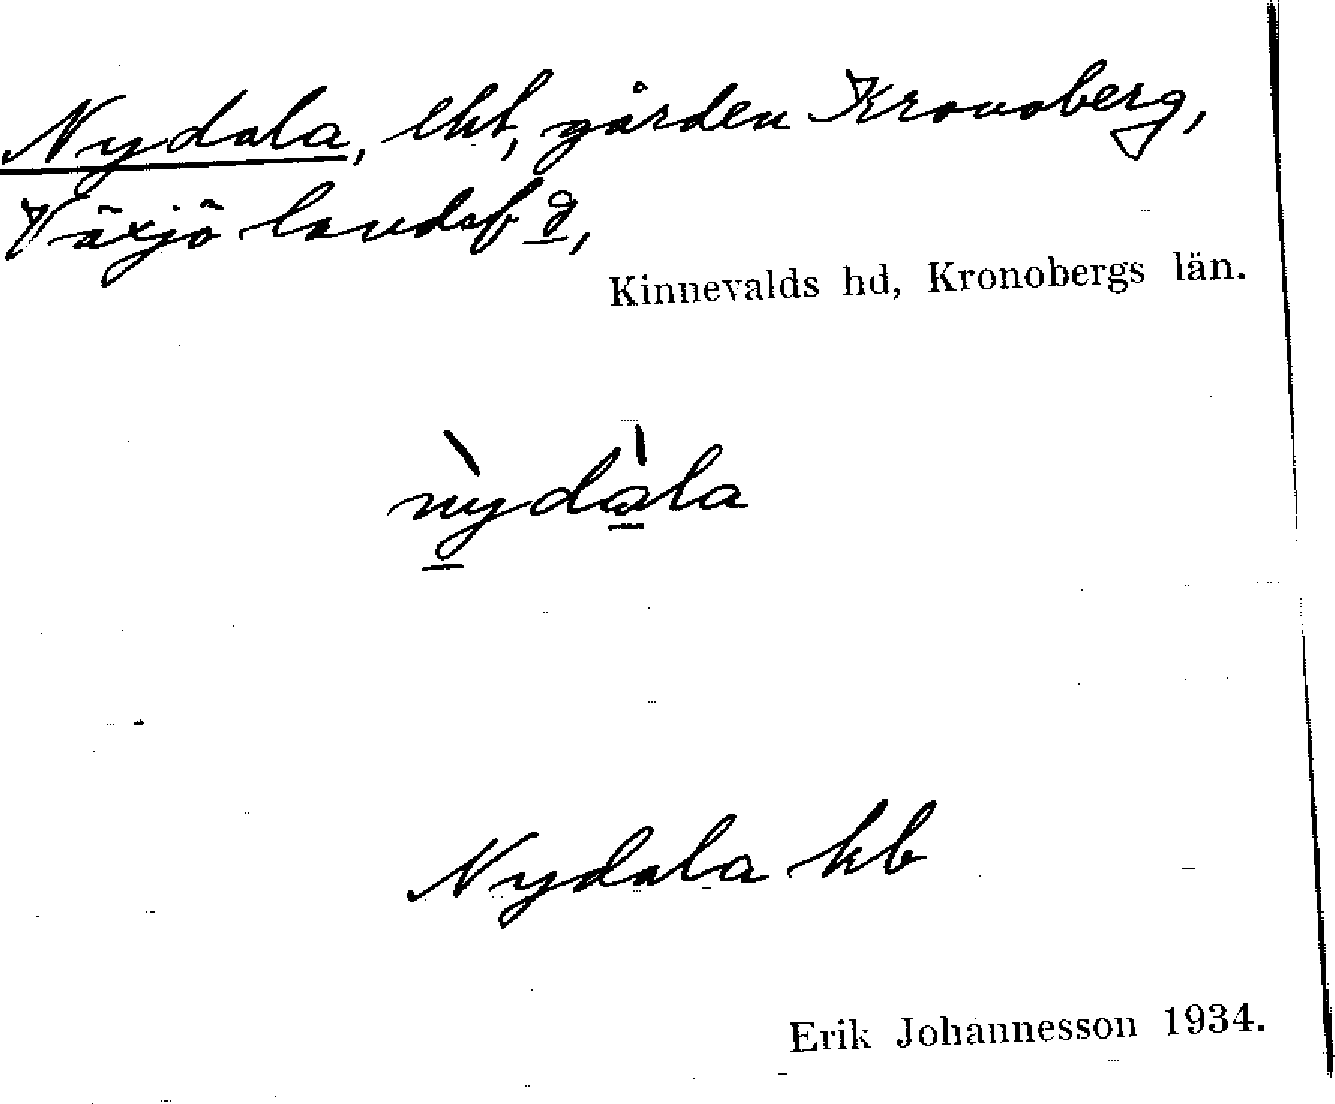 Nydala, lht, gården Kronoberg,
Växjö landsf d,
Kinnevalds hd, Kronobergs län.
nỳdàla
Nydala hb
Erik Johannesson 1934.